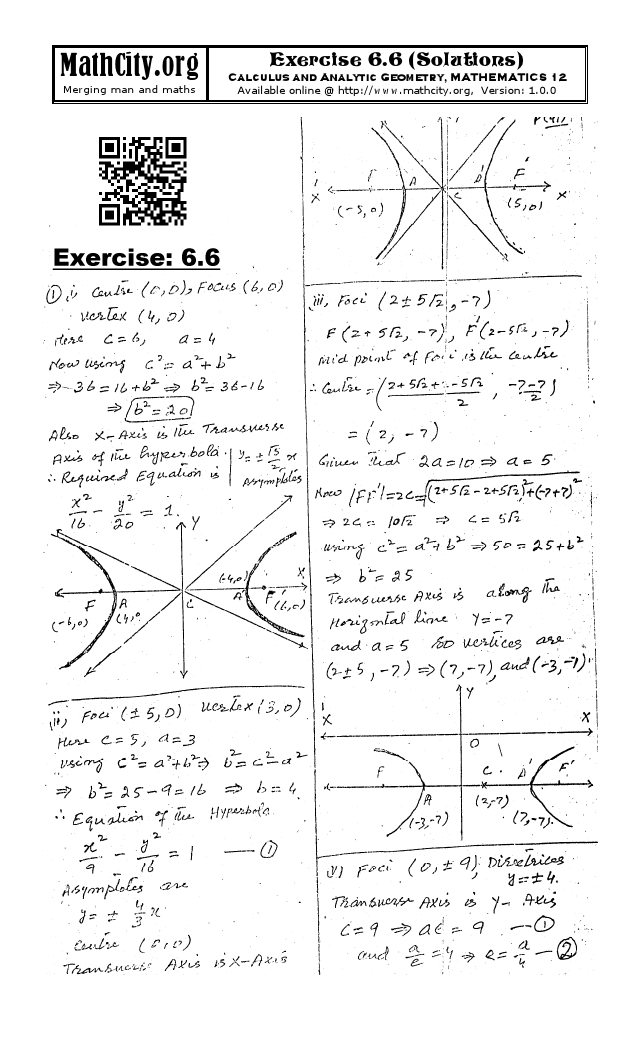 MathCity.org
Merging man and maths
Exercise 6.6 (Solutions)
CALCULUS AND ANALYTIC GEOMETRY, MATHEMATICS 12
Available online @ http://www.mathcity.org, Version: 1.0.0
Exercise: 6.6
① i, Centre (0,0), Focus (6,0)
Vertex (4,0)
Here c=6, a=4
Now using c²=a²+b²
⇒ 36=16+b² ⇒ b²=36-16
⇒ b²=20
Also X-Axis is the Transverse
Axis of the hyperbola.
∴ Required Equation is
y=±√5/2 x
Asymptotes
x²/16 - y²/20 = 1
Y
X
(-4,0)
F A C A' F'
(-6,0) (4,0 (6,0)
ii, Foci (±5,0) Vertex (3,0)
Here c=5, a=3
using c²=a²+b² ⇒ b²=c²-a²
⇒ b²=25-9=16 ⇒ b=4
∴ Equation of the Hyperbola
x²/9 - y²/16 = 1 —— ①
Asymptotes are
y= ± 4/3 x
Centre (0,0)
Transverse Axis is X-Axis
F A C A' F'
X' X
(-5,0) (5,0)
iii, Foci (2±5√2, -7)
F(2+5√2, -7), F'(2-5√2, -7)
Mid point of Foci is the Centre
∴ Centre = (2+5√2+2-5√2/2, -7-7/2)
= (2, -7)
Given that 2a=10 ⇒ a=5
Now |FF'|=2c=√(2+5√2-2+5√2)²+(-7+7)²
⇒ 2c=10√2 ⇒ c=5√2
using c²=a²+b² ⇒ 50=25+b²
⇒ b²=25
Transverse Axis is along the
Horizontal line Y=-7
and a=5 So vertices are
(2±5, -7) ⇒ (7,-7) and (-3,-7)
Y
X' X
O
F C A' F'
A (2,-7)
(-3,-7) (7,-7)
v) Foci (0,±9) Directrices
y=±4.
Transverse Axis is y-Axis
c=9 ⇒ ae=9 —①
and a/e=4 ⇒ e=a/4 —②